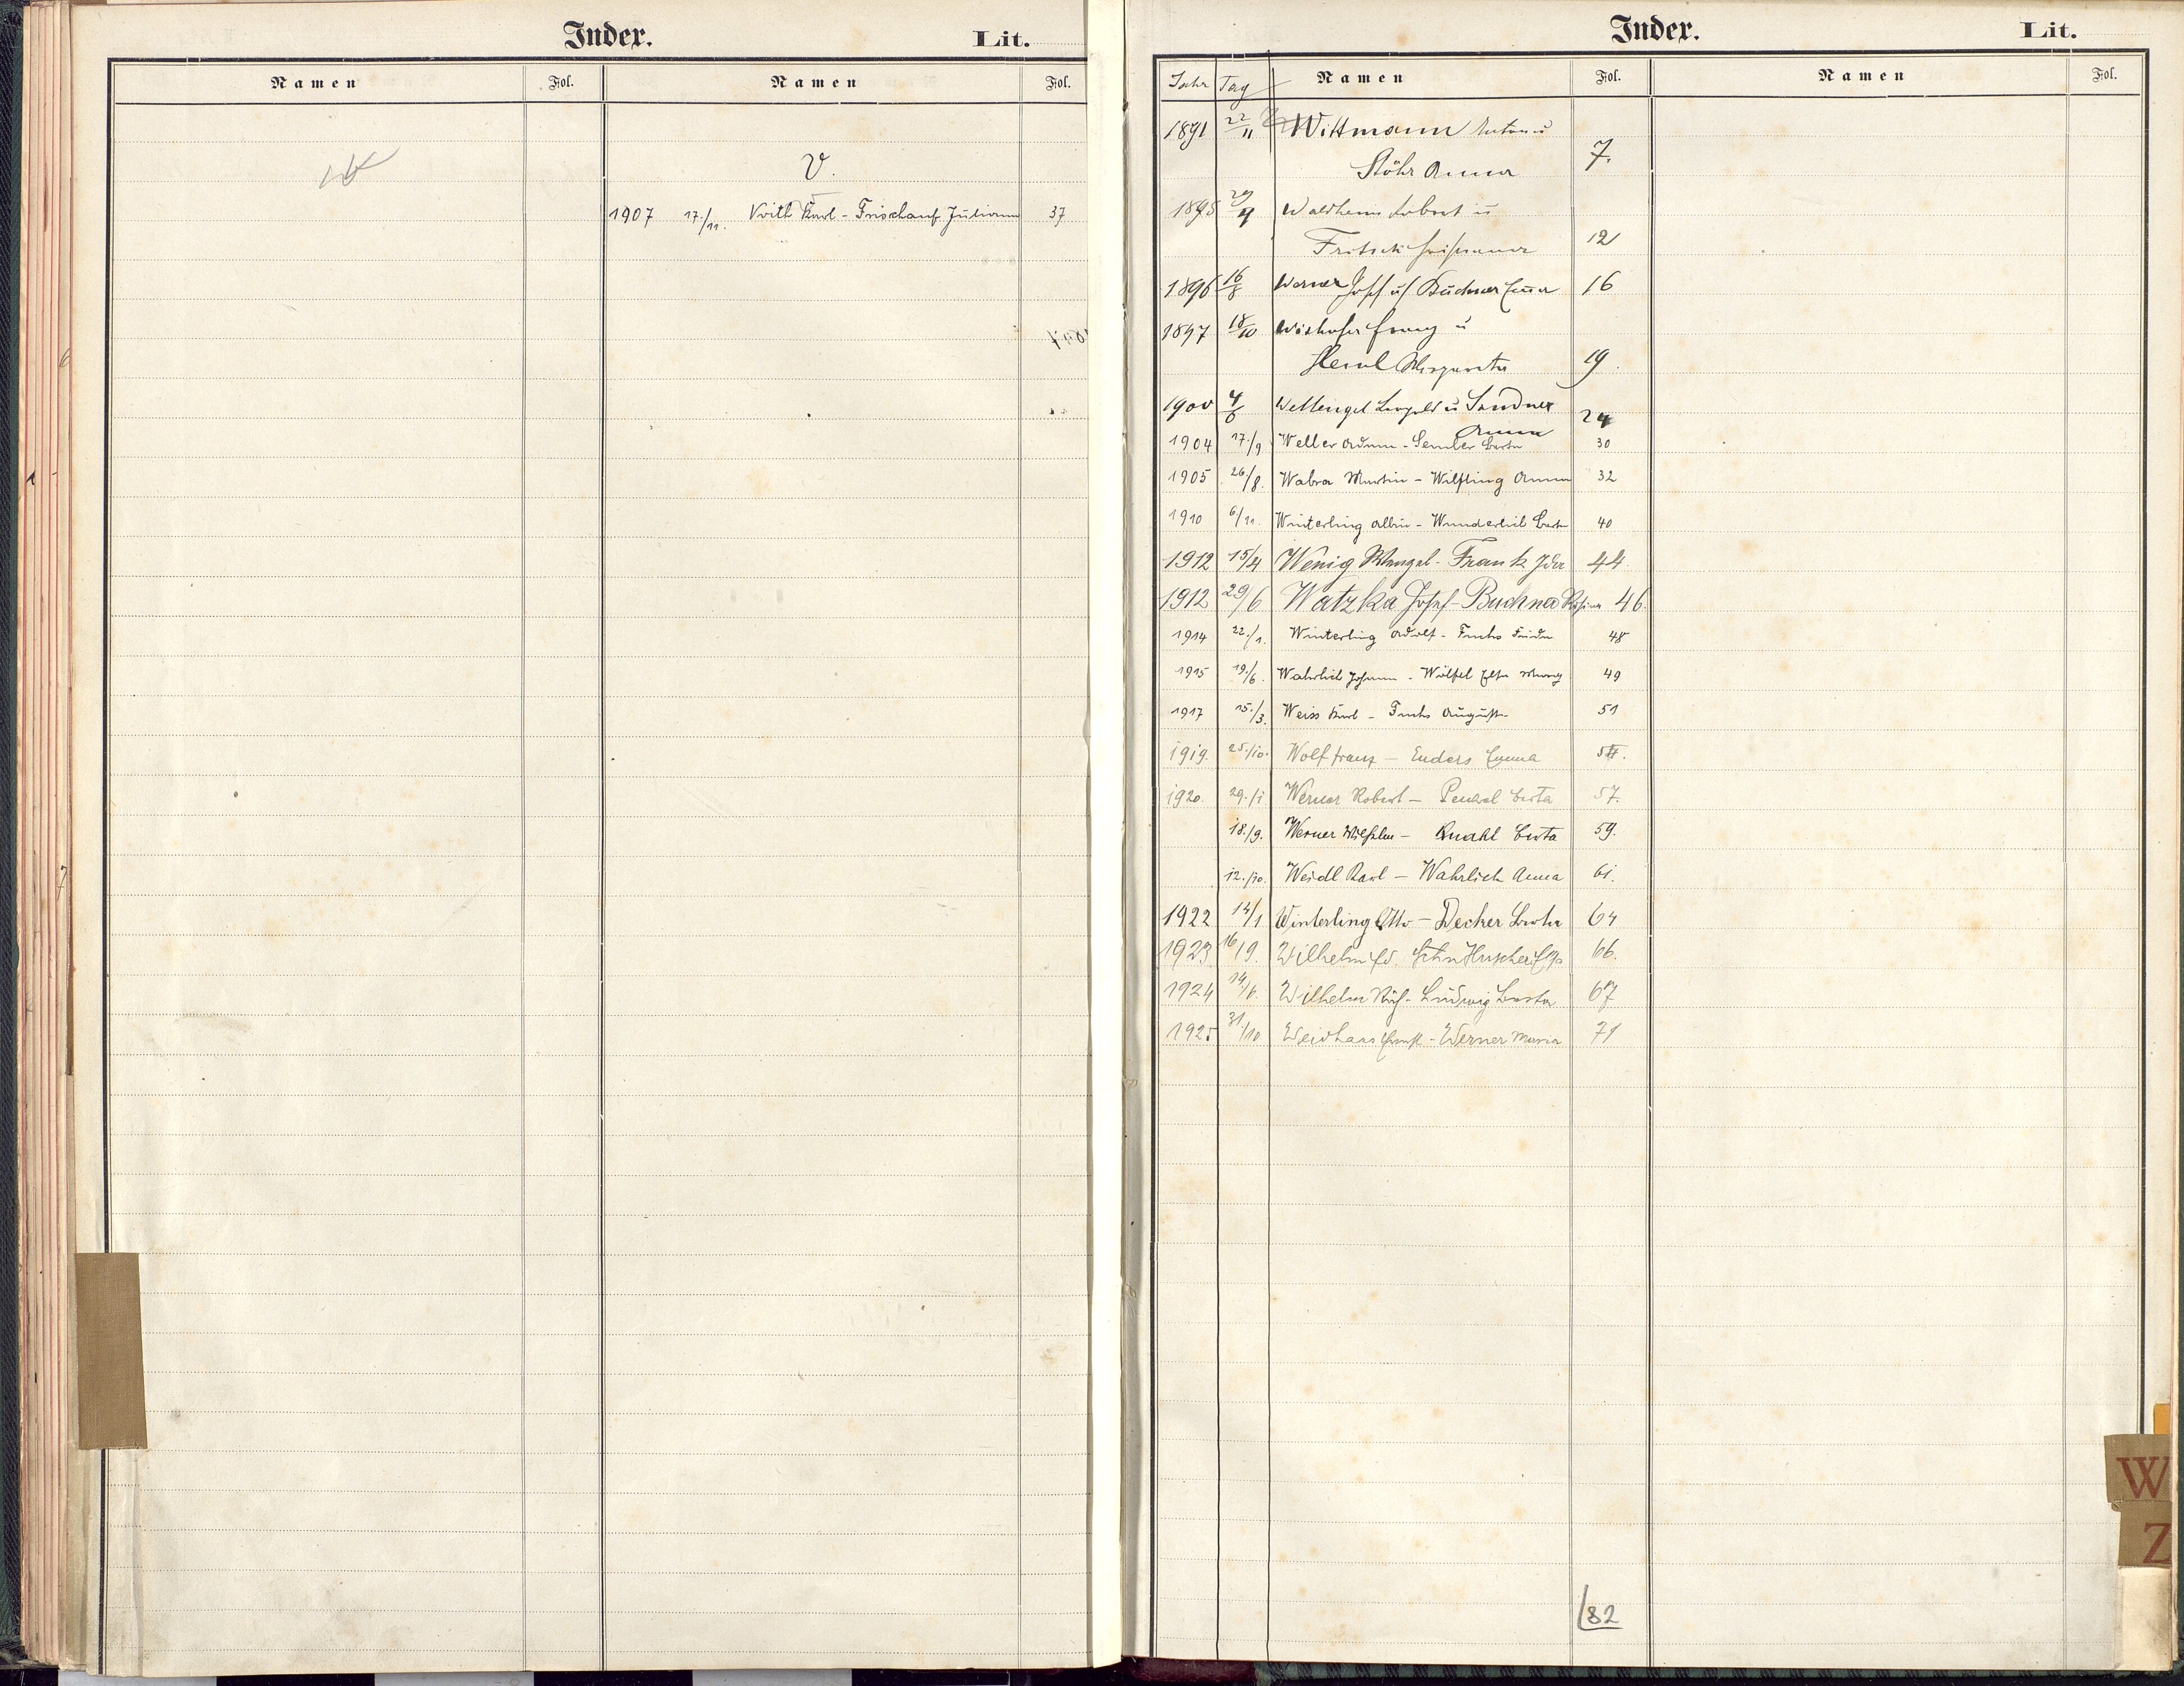 Index.
Lit.
Namen Fol. Namen Fol.
V.
1907 17./11. Voith Karl - Frischauf Juliana 37
Index.
Lit.
Jahr Tag Namen Fol. Namen Fol.
1891 22/11 Wittmann Anton u
Stöhr Anna 7.
1895 Waldheim Robert u
Fritsch 12
1896 16/8 Werner Josef u Buchner Emma 16
1897 18/10 Franz u
Margareta 19
1900 4/6 Wettengel Leopold u Sandner
Anna 24
1904 17./9 Weller Adam - Semler Berta 30
1905 26./8. Wabra Martin - Wilfling Anna 32
1910 6/11. Winterling Albin - Wunderlich Berta 40
1912 15/4 Wenig Wenzel - Frank Ida 44
1912 29/6 Watzka Josef - Buchna Rosina 46.
1914 22./1. Winterling Adolf - Fuchs Frieda 48
1915 19./6. Wahrlich Johann - Wölfel 49
1917 15./3. Weiss Karl - Fuchs Augusta 51
1919. 25./10. Wolf Franz - Enders Emma
1920. 29./1 Werner Robert - Berta 57.
18./9. Werner Wilhelm - Knahl Berta 59.
12./10. Weidl Karl - Wahrlich Anna 61.
1922 14/1 Winterling Otto - Decker Berta 64
1923 16/9. Wilhelm 66.
1924 14/6. Wilhelm - Ludwig Berta 67
1925 31./10 Weidhaas Ernst - Werner Maria 71
82
W
Z